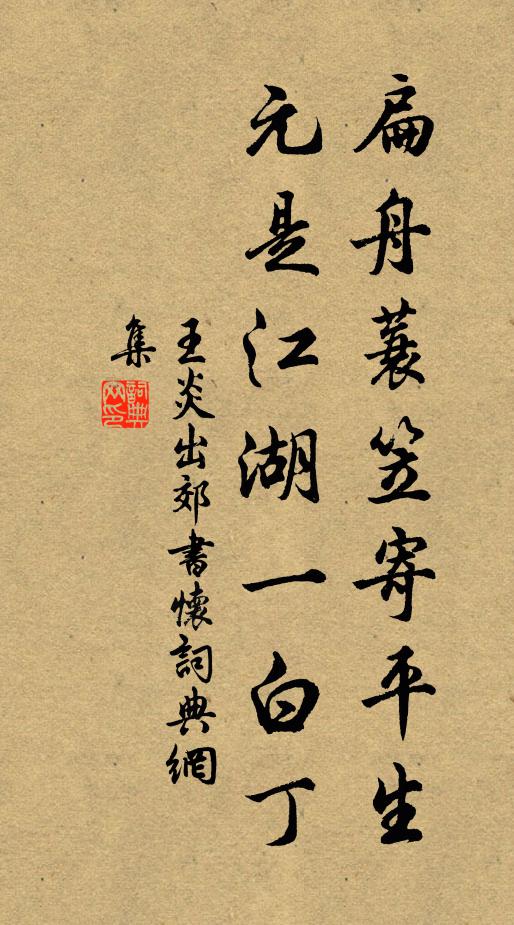 扁舟蓑笠寄平生
元是江湖一白丁
王炎出郊書懷詞典網
集
詞典網印